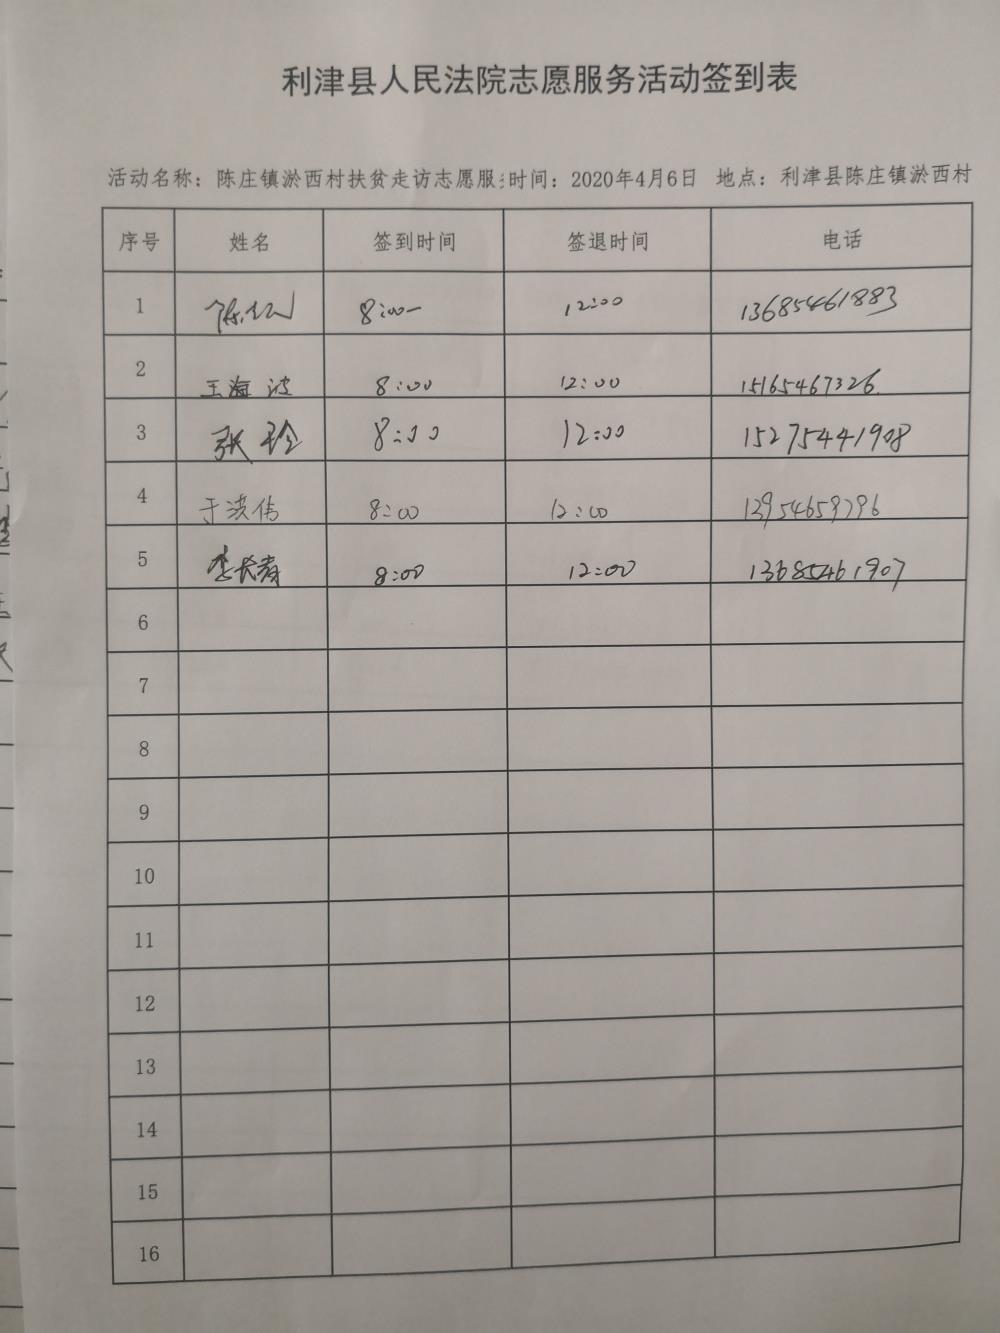 利津县人民法院志愿服务活动签到表
活动名称：陈庄镇淤西村扶贫走访志愿服 时间：2020年4月6日 地点：利津县陈庄镇淤西村
序号 姓名 签到时间 签退时间 电话
1 陈 8:00 12:00 13685461883
2 王海波 8:00 12:00 15165467326
3 张玲 8:00 12:00 15275441908
4 于洪伟 8:00 12:00 13954659796
5 李长青 8:00 12:00 13685461907
6
7
8
9
10
11
12
13
14
15
16